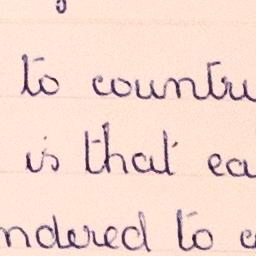 to countr
is that ea
ndered to